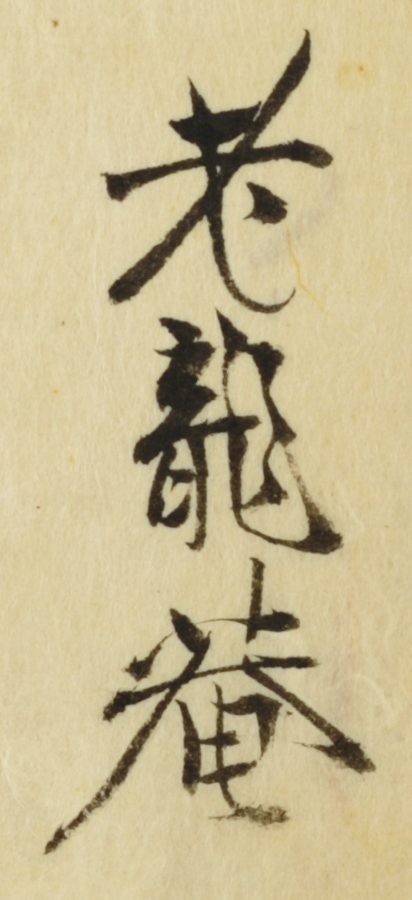 老龍菴